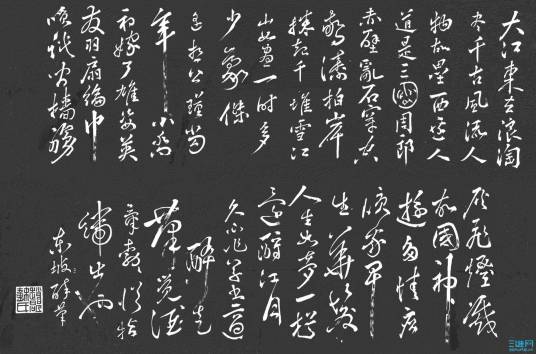 大江東去浪淘
尽千古風流人
物故壘西邊人
道是三國周郎
赤壁亂石穿空
驚濤拍岸
捲起千堆雪江
山如畫一時多
少豪傑
遙想公瑾當
年小喬
初嫁了雄姿英
發羽扇綸巾
談笑間檣櫓
灰飛煙滅
故國神
遊多情應
笑我早
生華髮
人生如夢一樽
還酹江月
久不作草書適
醉走
筆覺酒
氣勃勃從指
端出也
東坡醉筆